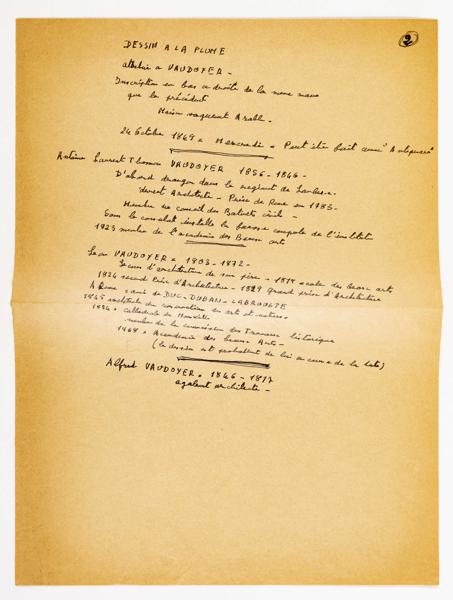 2
DESSIN A LA PLUME
attribué a VAUDOYER -
Inscription en bas a droite de la meme main
que la précédent
Maison Arabe -
24 Octobre 1849 = Mercredi = Peut être fait aussi
Antoine Laurent Thomas VAUDOYER 1756 - 1846 -
D'abord dragon dans le regiment de
devient Architecte - Prix de Rome en 1783 -
Membre du conseil des Batiments civils -
Sous le consulat installe la fausse coupole de l'institut
1823 membre de l'academie des Beaux arts
Leon VAUDOYER = 1803 - 1872 -
Lecons d'architecture de son père - 1819 ecole des beaux arts
1824 second Prix d'Architecture - 1826 Grand prix d'Architecture
A Rome = ami de DUC - DUBAN - LABROUSTE
1845 architecte du conservatoire des arts et metiers
Cathedrale de Marseille
membre de la commission des Travaux historiques
1868 = Academie des beaux Arts -
(le dessin est probablement de lui a cause de la date)
Alfred VAUDOYER = 1846 - 1917
egalement architecte -